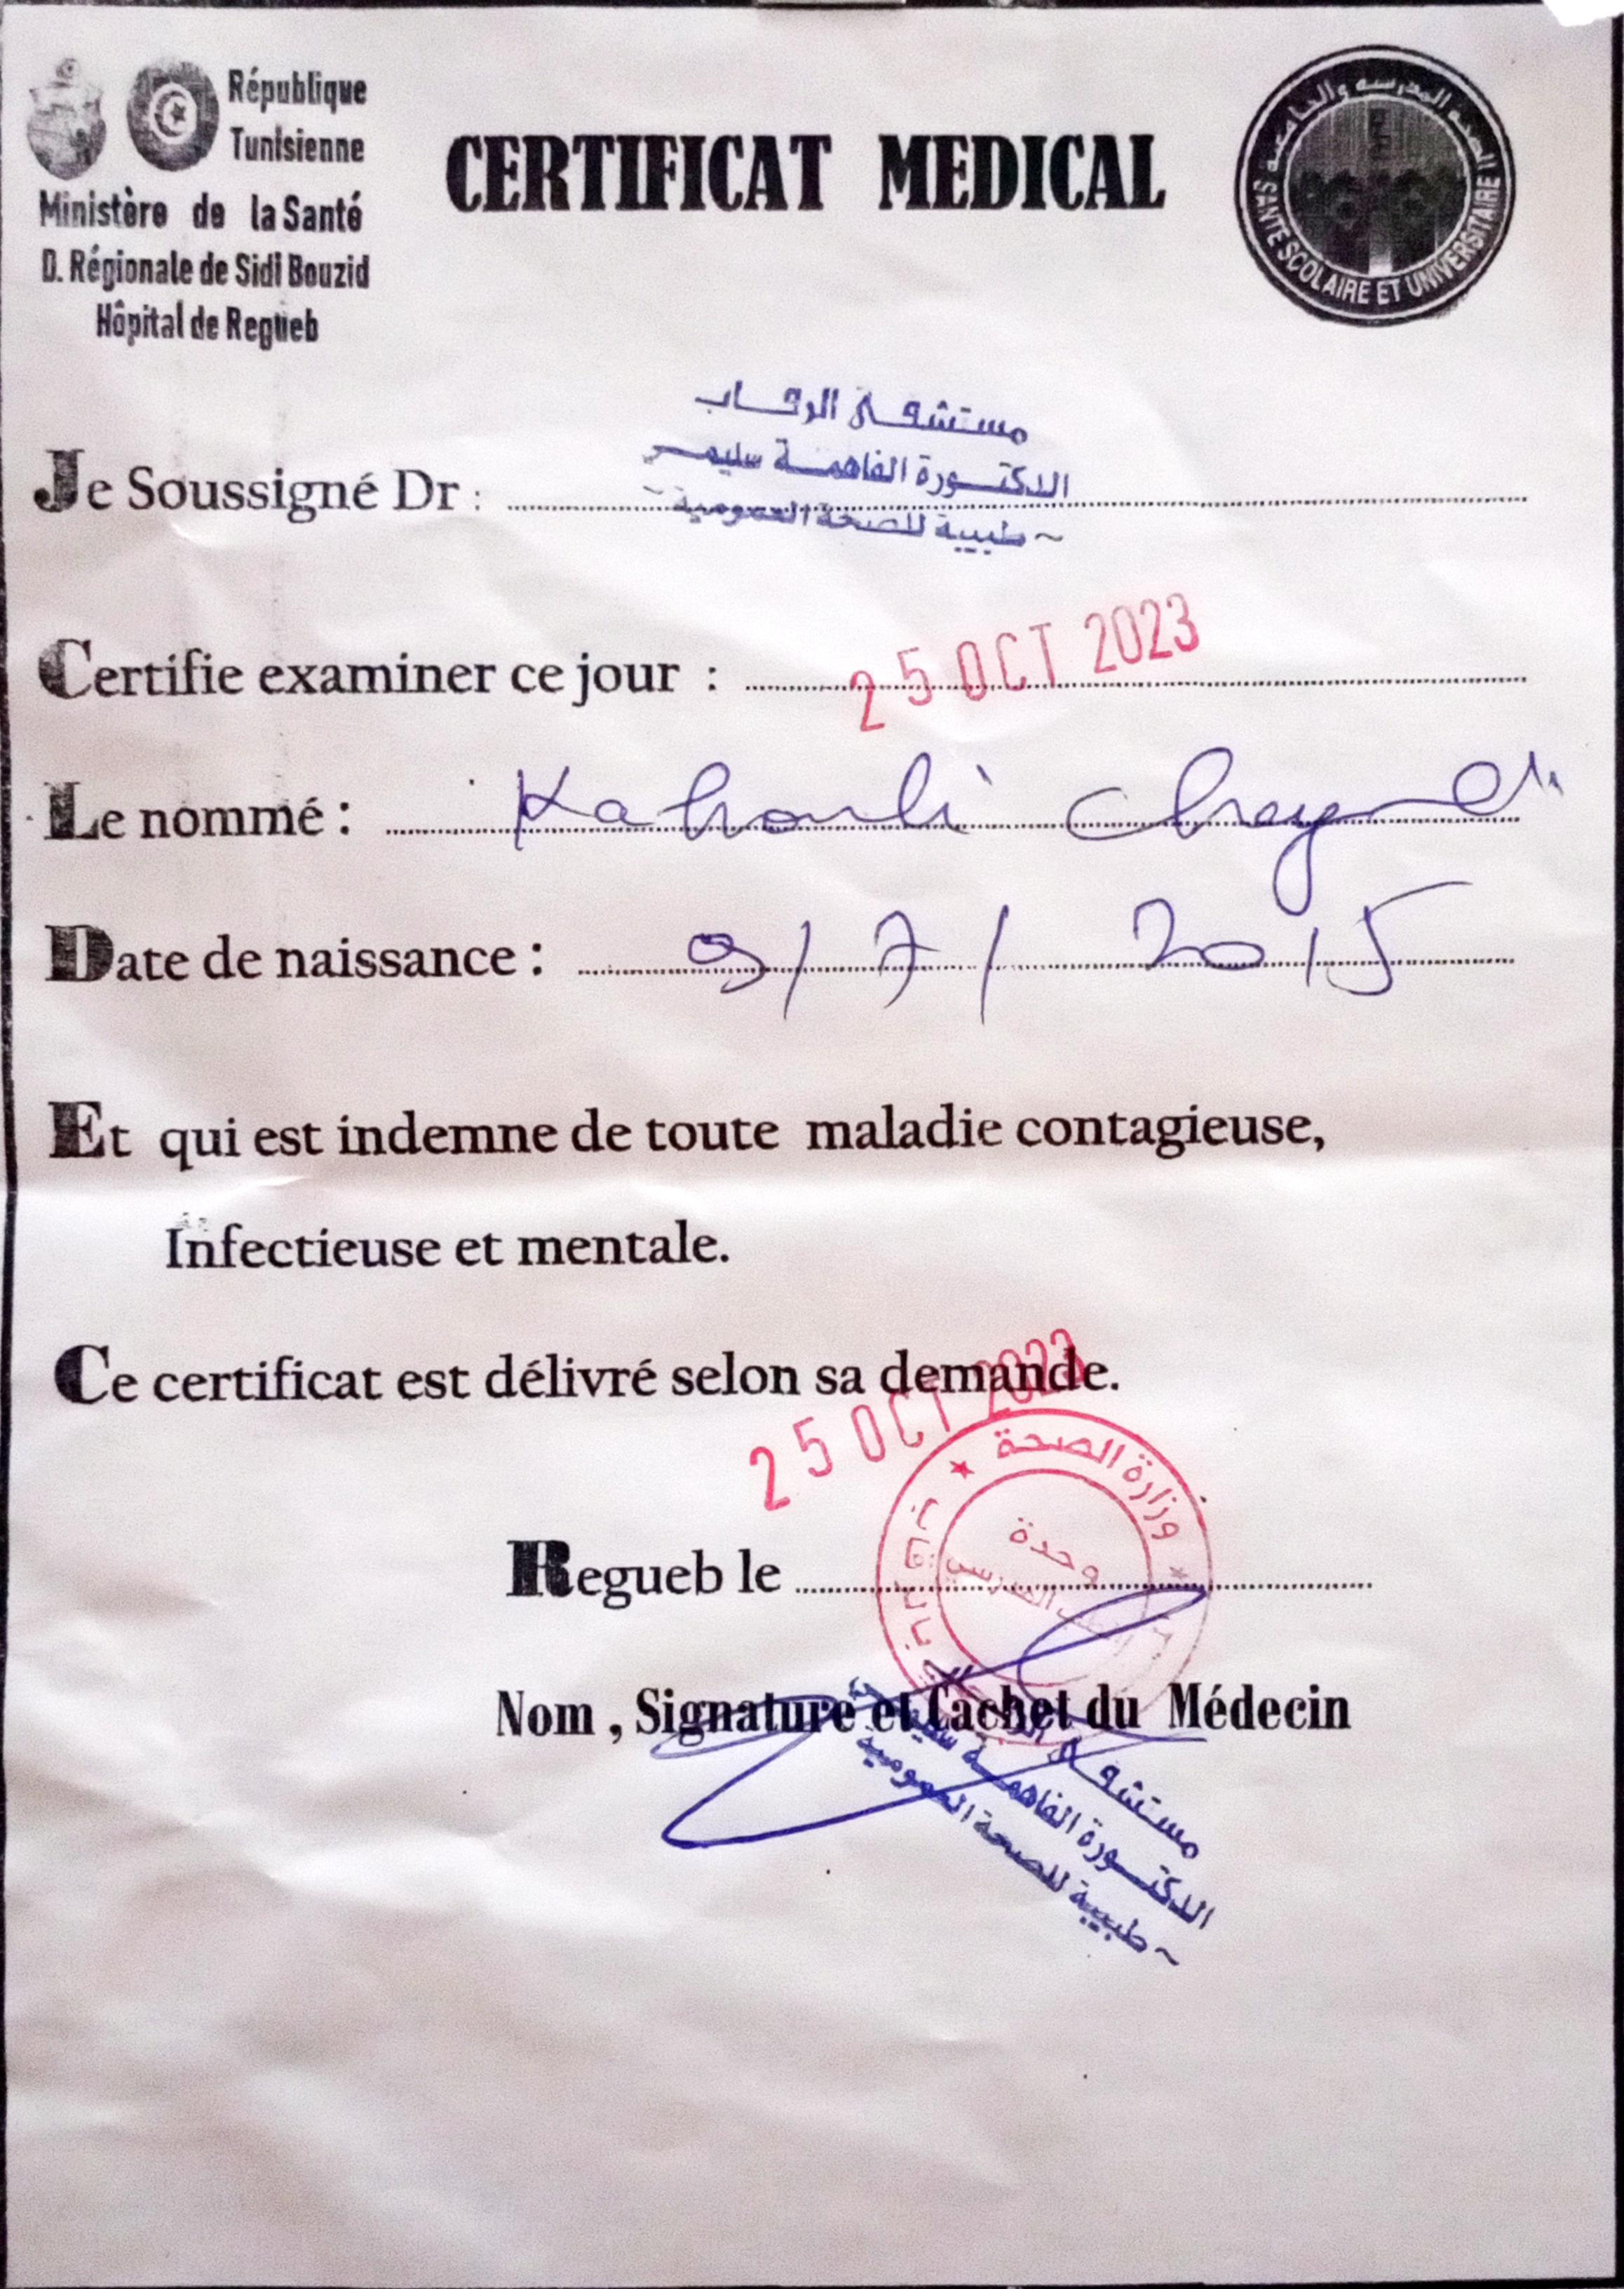 République
Tunisienne
Ministère de la Santé
D. Régionale de Sidi Bouzid
Hôpital de Regueb
CERTIFICAT MEDICAL
SANTE SCOLAIRE ET UNIVERSITAIRE
مستشفى الرقاب
الدكتورة الفاهمة سليمي
~ طبيبة للصحة العمومية ~
Je Soussigné Dr :
Certifie examiner ce jour : 25 OCT 2023
Le nommé : Kahouli
Date de naissance : 9/7/2015
Et qui est indemne de toute maladie contagieuse,
Infectieuse et mentale.
Ce certificat est délivré selon sa demande.
25 OCT 2023
وزارة الصحة
وحدة
Regueb le
Nom , Signature et Cachet du Médecin
مستشفى
الدكتورة الفاهمة
~ طبيبة للصحة العمومية